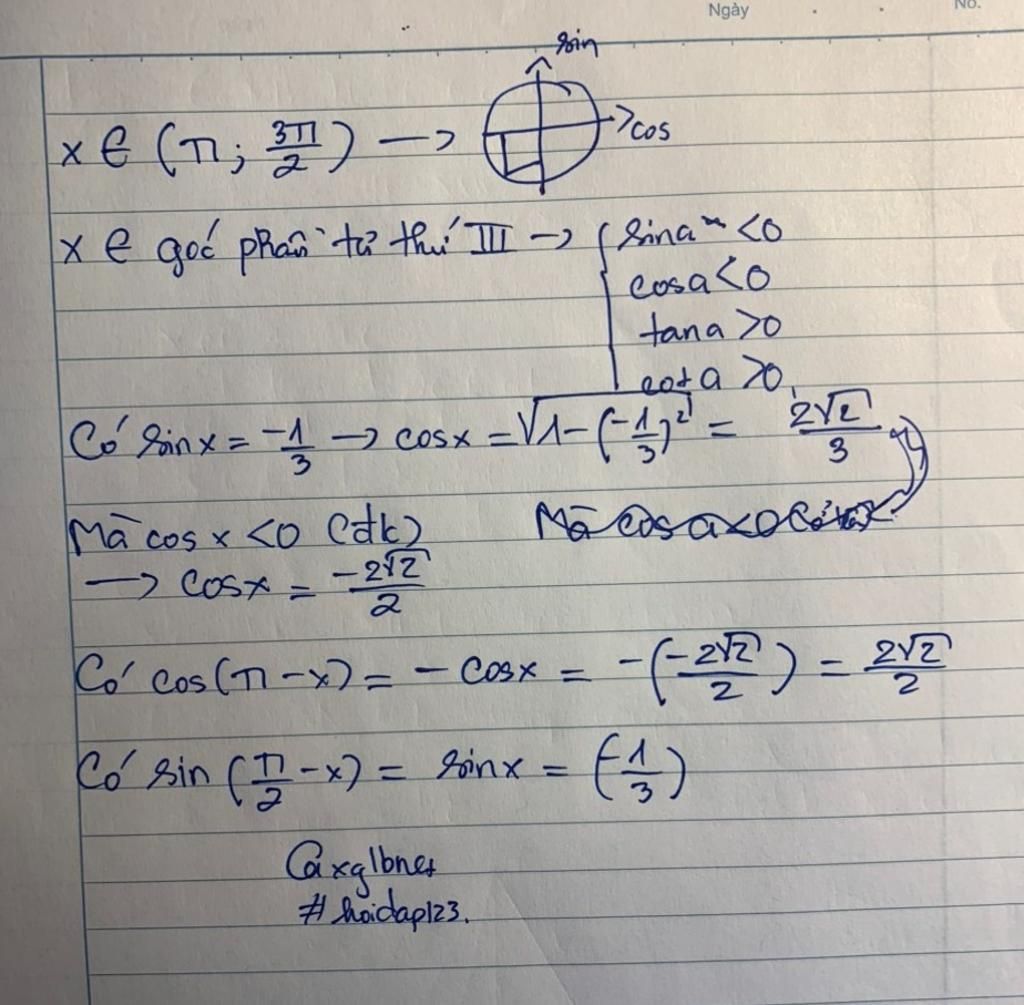 Ngày No.
sin
x ∈ (π; 3π/2) → cos
x ∈ góc phần tư thứ III → { sina < 0
cosa < 0
tana > 0
cota > 0
Có sinx = -1/3 → cosx = √(1-(-1/3)²) = 2√2/3
Mà cosx < 0 (đk)
→ cosx = -2√2/2
Có cos(π - x) = - cosx = -(-2√2/2) = 2√2/2
Có sin(π/2 - x) = sinx = (-1/3)
@xglbnet
#hoidap123.